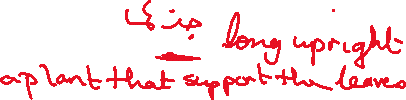 long upright
a plant that support the leaves